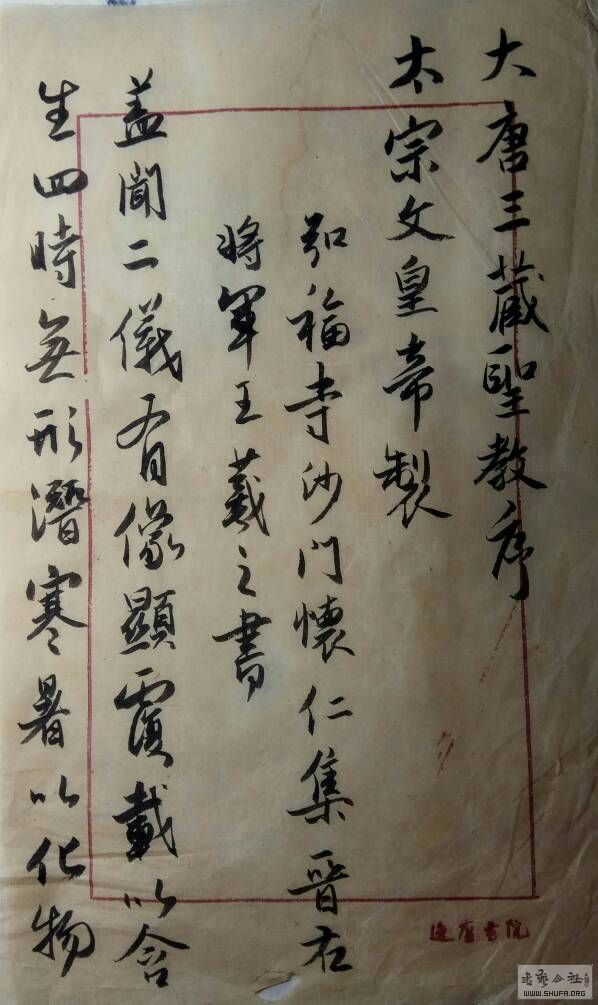 大唐三藏聖教序
太宗文皇帝製
弘福寺沙門懷仁集晉右
將軍王羲之書
蓋聞二儀有像顯覆載以含
生四時無形潛寒暑以化物
書院
WWW.SHUFA.ORG